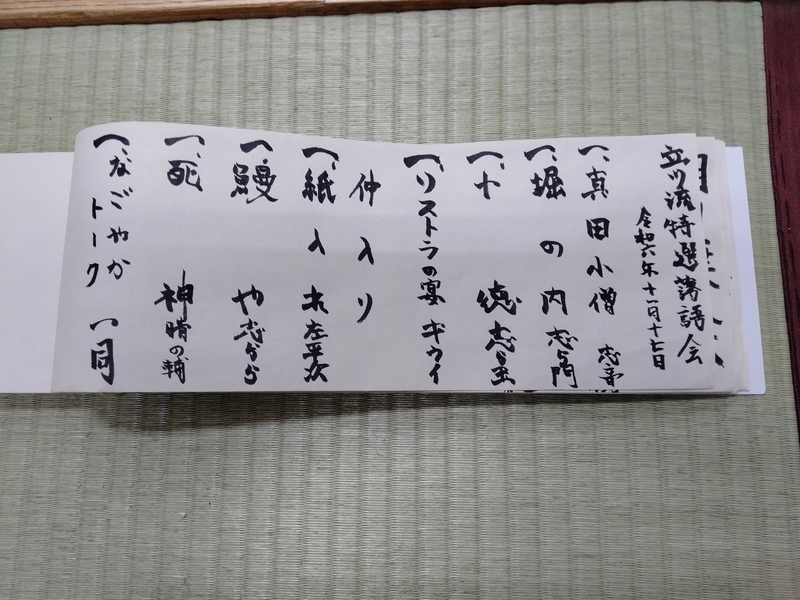 立川流特選落語会
令和六年十一月十七日
一、真田小僧
一、堀の内 志ら門
一、十徳 志ら玉
一、リストラの宴 キウイ
仲入り
一、紙入れ 左平次
一、鰻や 志らら
一、死神 晴の輔
一、なごやか
トーク 一同